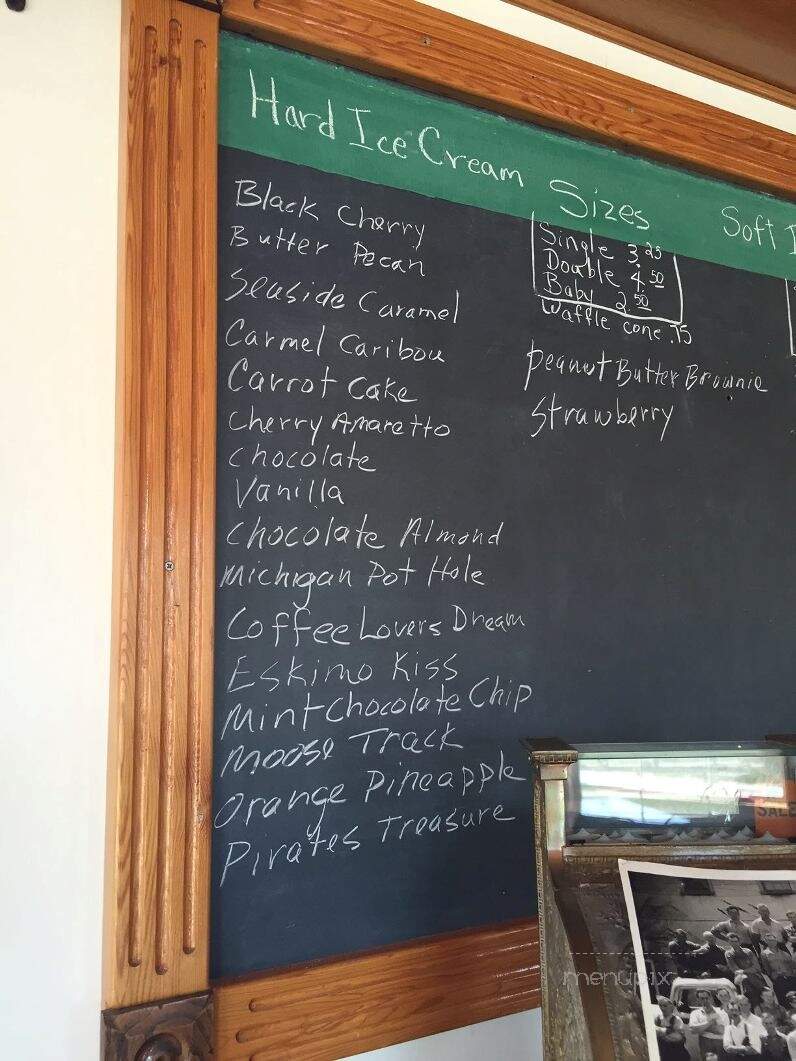 Hard Ice Cream
Black Cherry
Butter Pecan
Seaside Caramel
Carmel Caribou
Carrot Cake
Cherry Amaretto
Chocolate
Vanilla
Chocolate Almond
Michigan Pot Hole
Coffee Lovers Dream
Eskimo Kiss
Mint Chocolate Chip
Moose Track
Orange Pineapple
Pirates Treasure
Sizes
Single 3.25
Double 4.50
Baby 2.50
Waffle cone .75
Peanut Butter Brownie
Strawberry
Soft I
SALE
menupix